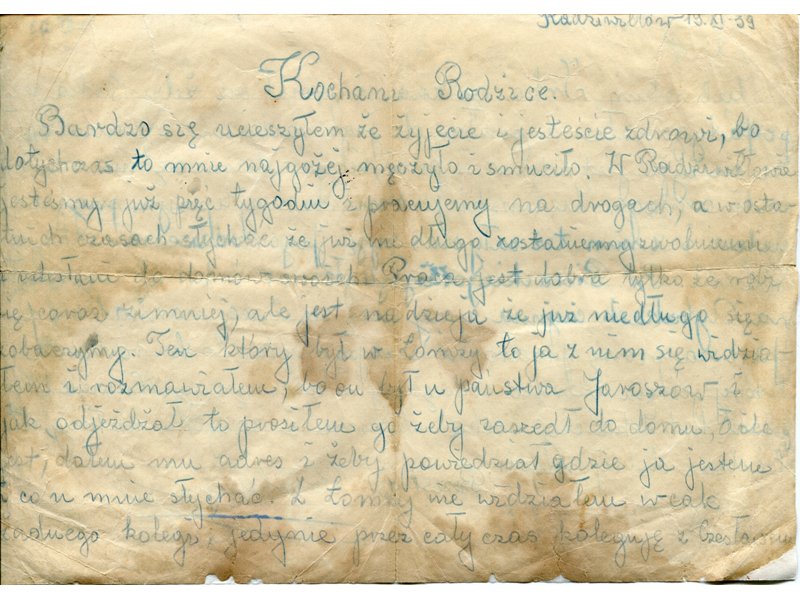 Radziwiłłów 19.XI.39
Kochani Rodzice.
Bardzo się ucieszyłem że żyjecie i jesteście zdrowi, bo
dotychczas to mnie najgożej męczyło i smuciło. W Radziwiłłowie
jesteśmy już pięć tygodni i pracujemy na drogach, a w osta-
tnich czasach słychać że już nie długo zostaniemy zwolnieni
i odesłani do domów. Praca jest dobra tylko że robi
się coraz zimniej, ale jest nadzieja że już niedługo się
zobaczymy. Ten który był w Łomży, to ja z nim się widzia-
łem i rozmawiałem, bo on był u państwa Jaroszów i
jak odjeżdżał to prosiłem go żeby zaszedł do domu,
dałem mu adres i żeby powiedział gdzie ja jestem
i co u mnie słychać. Z Łomży nie widziałem wcale
żadnego kolegi, jedynie przez cały czas koleguję z Czesławem